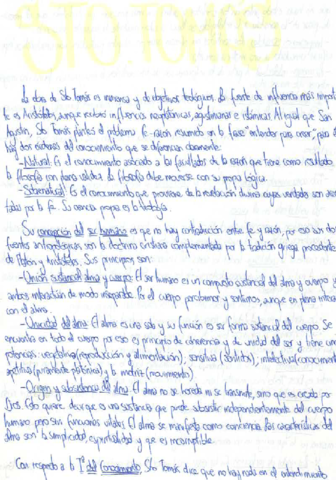 STO TOMÁS
La obra de Sto Tomás es inmensa y de objetivos teológicos, la fuente de influencia más importan
te es Aristóteles, aunque recibió influencias neoplatónicas, agustinianas e islámicas. Al igual que San
Agustín, Sto Tomás plantea el problema fe-razón resumido en la frase "entender para creer", pero
dos esferas del conocimiento que se diferencian claramente:
-Natural: Es el conocimiento asociado a las facultades de la razón que tiene como resultado
la filosofía con plena validez. La filosofía debe moverse con su propia lógica.
-Sobrenatural: Es el conocimiento que proviene de la revelación divina cuyas verdades son
por la fe. Su ciencia propia es la teología.
Su concepción del ser humano es que no hay contradicción entre fe y razón, por eso sus dos
fuentes antropológicas son la doctrina cristiana complementada por la tradición griega procedente
de Platón y Aristóteles. Sus principios son:
-Unión sustancial alma y cuerpo: El ser humano es un compuesto sustancial del alma y cuerpo y
ambos interactúan de modo inseparable. Es el cuerpo y sentimos, aunque en plena
con el alma.
-Unicidad del alma: El alma es una sola y su función es ser forma sustancial del cuerpo. Se
encuentra en todo el cuerpo por eso es principio de coherencia y de unidad del ser y tiene
potencias: vegetativa (reproducción y alimentación), sensitiva intelectiva (conocimiento
apetitiva y motriz (movimientos)
-Origen y subsistencia del alma: El alma no se hereda ni se transmite, sino que es creada por
Dios. Esto quiere decir que es una sustancia que puede subsistir independientemente del cuerpo
humano pero sin funciones vitales. El alma se manifiesta como conciencia. Las características del
alma son: la simplicidad, espiritualidad y que es incorruptible.
Con respecto a la Tª del Conocimiento, Sto Tomás dice que no hay nada en el entendimiento